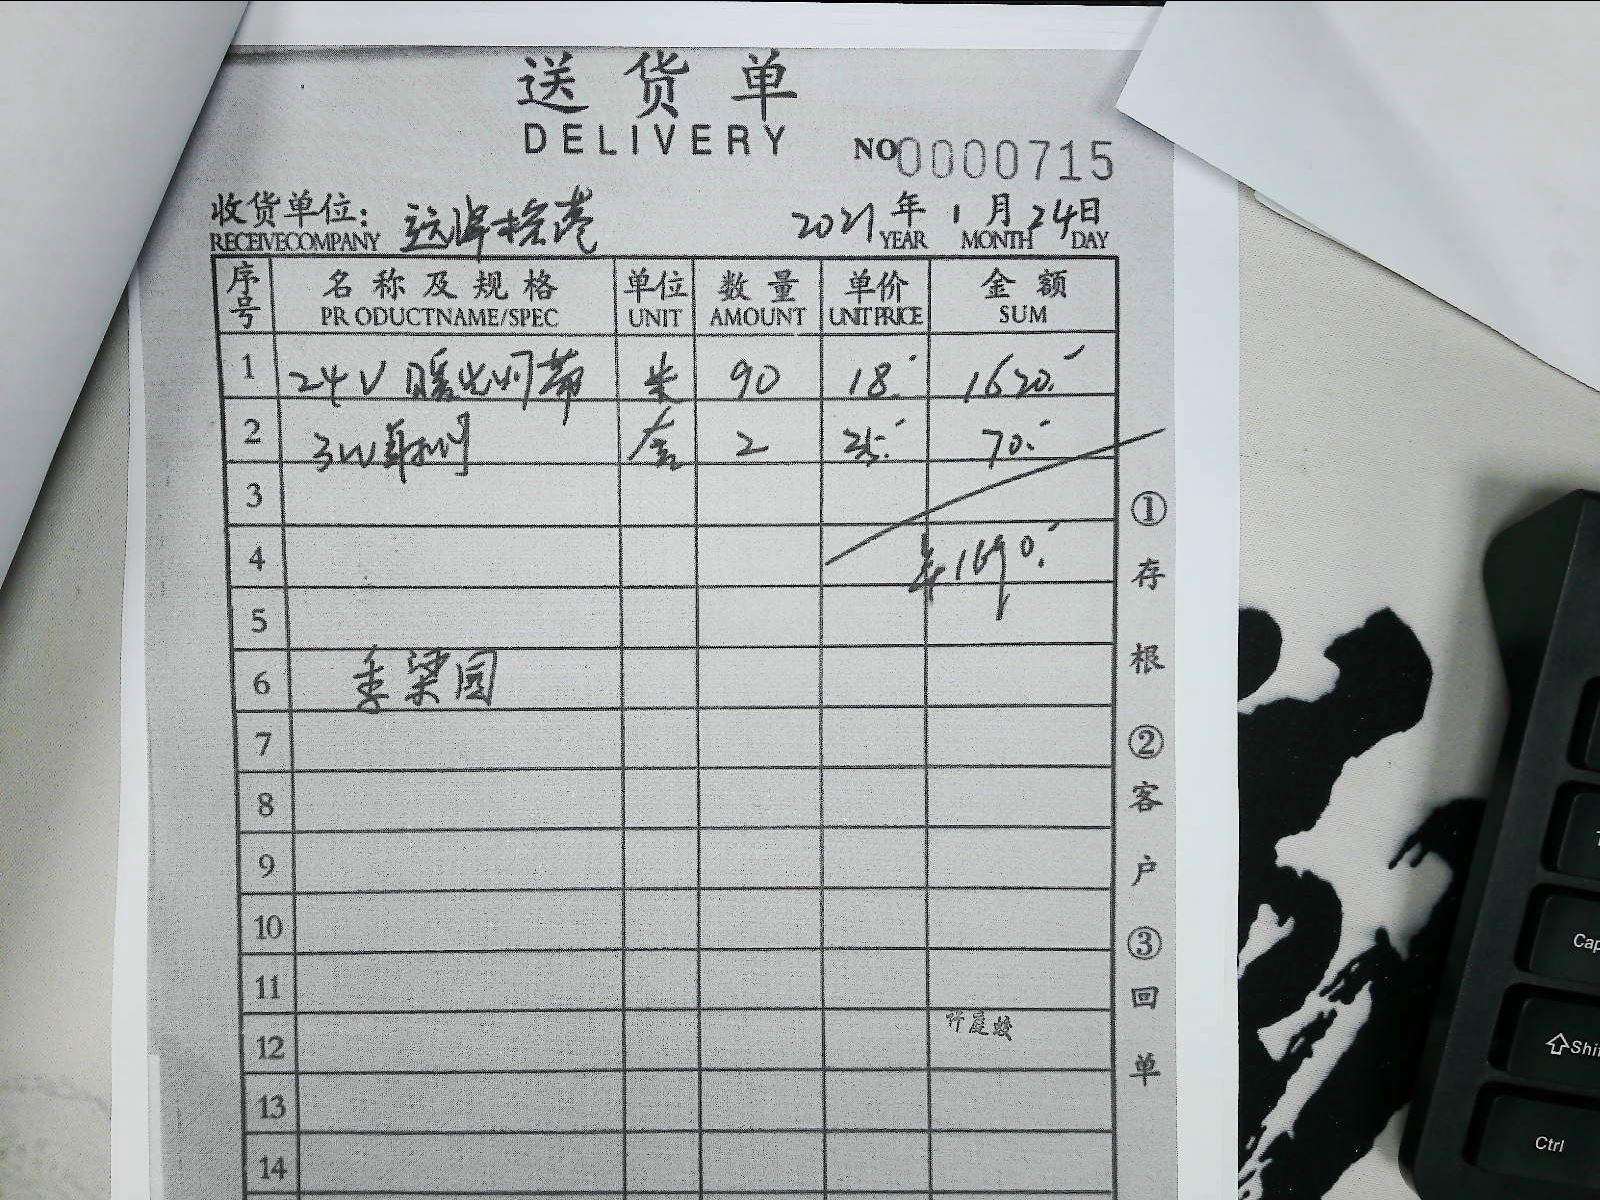 送货单
DELIVERY
NO 0000715
收货单位:
RECEIVECOMPANY
2021年1月24日
YEAR MONTH DAY
序号 名称及规格 单位 数量 单价 金额
PRODUCTNAME/SPEC UNIT AMOUNT UNITPRICE SUM
1 24V暖光灯带 米 90 18.- 1620.-
2 3W射灯 套 2 35.- 70.-
3
4 ¥1690.-
5
6 季梁园
7
8
9
10
11
12 许庭蛟
13
14
①存根 ②客户 ③回单
Cap
Shif
Ctrl